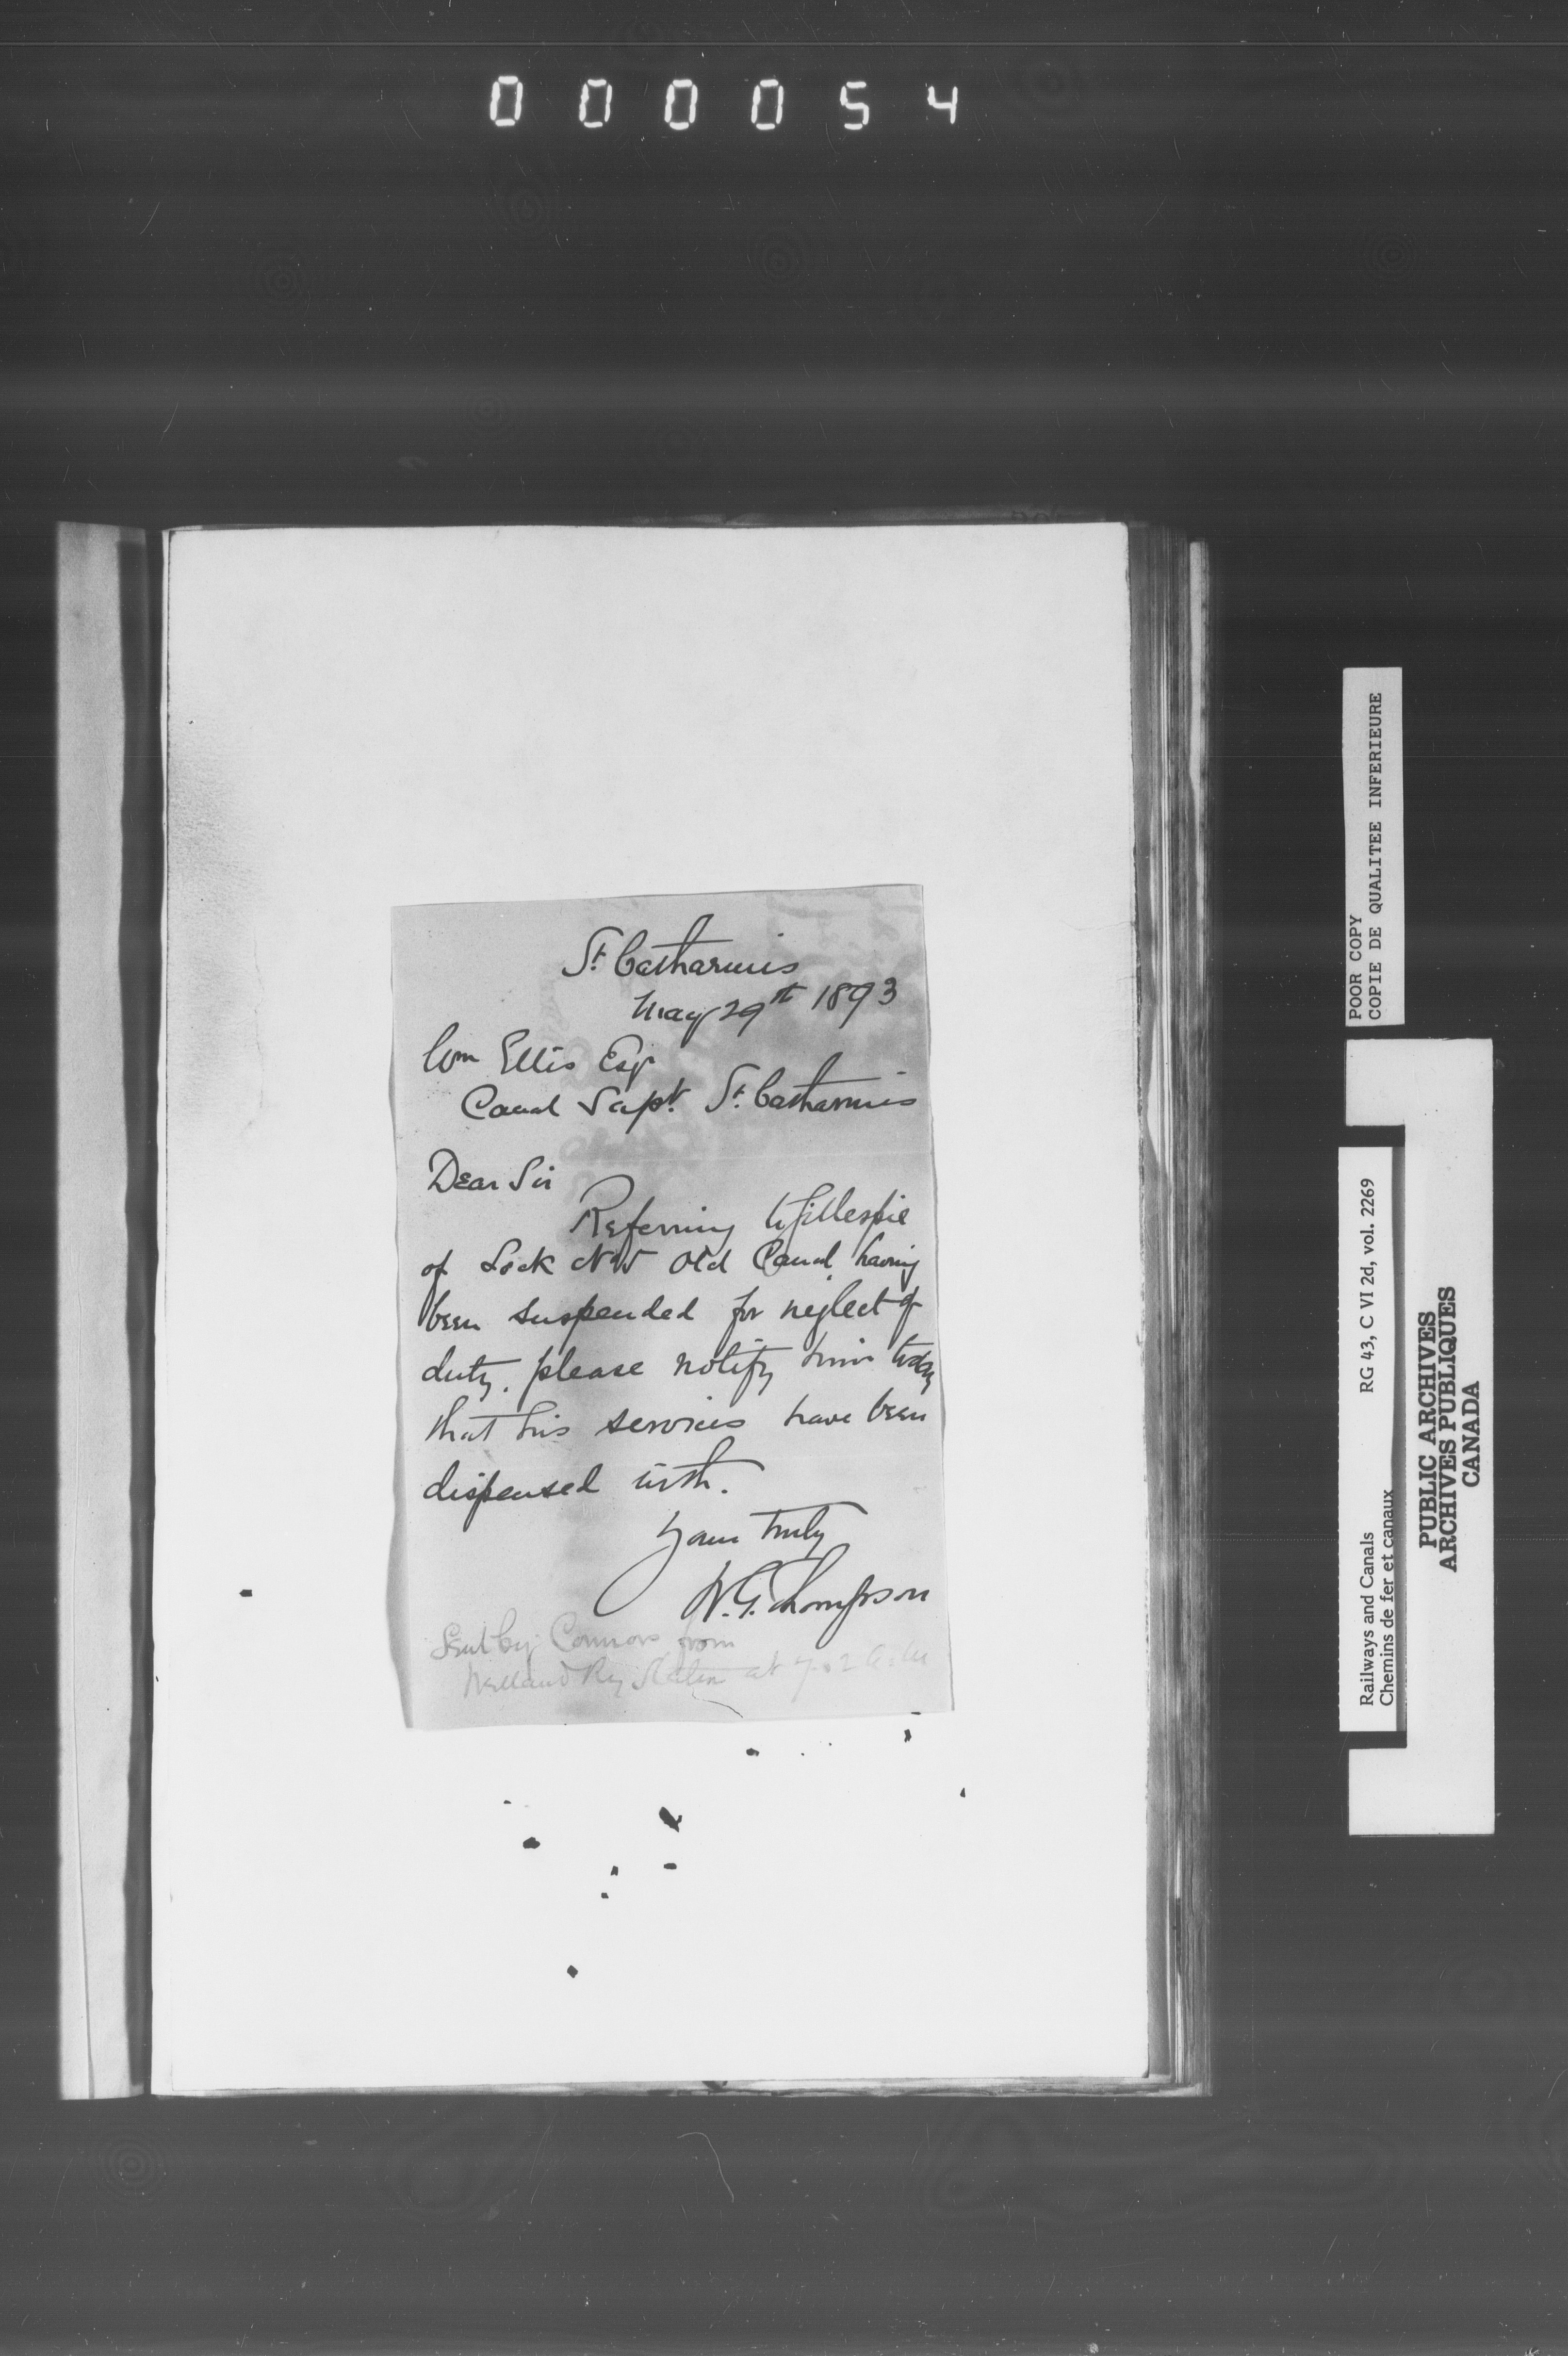 000054
St. Catharines
May 29th 1893
Wm Ellis Esqr
Canal Supt. St. Catharines
Dear Sir
Referring to Gillespie
of Lock No 5 Old Canal, having
been suspended for neglect of
duty, please notify him today
that his services have been
dispensed with.
Yours truly
W.G. Thompson
Sent by Connors from
Welland Ry Station at 7.02 a.m
POOR COPY
COPIE DE QUALITEE INFERIEURE
Railways and Canals RG 43, C VI 2d, vol. 2269
Chemins de fer et canaux
PUBLIC ARCHIVES
ARCHIVES PUBLIQUES
CANADA